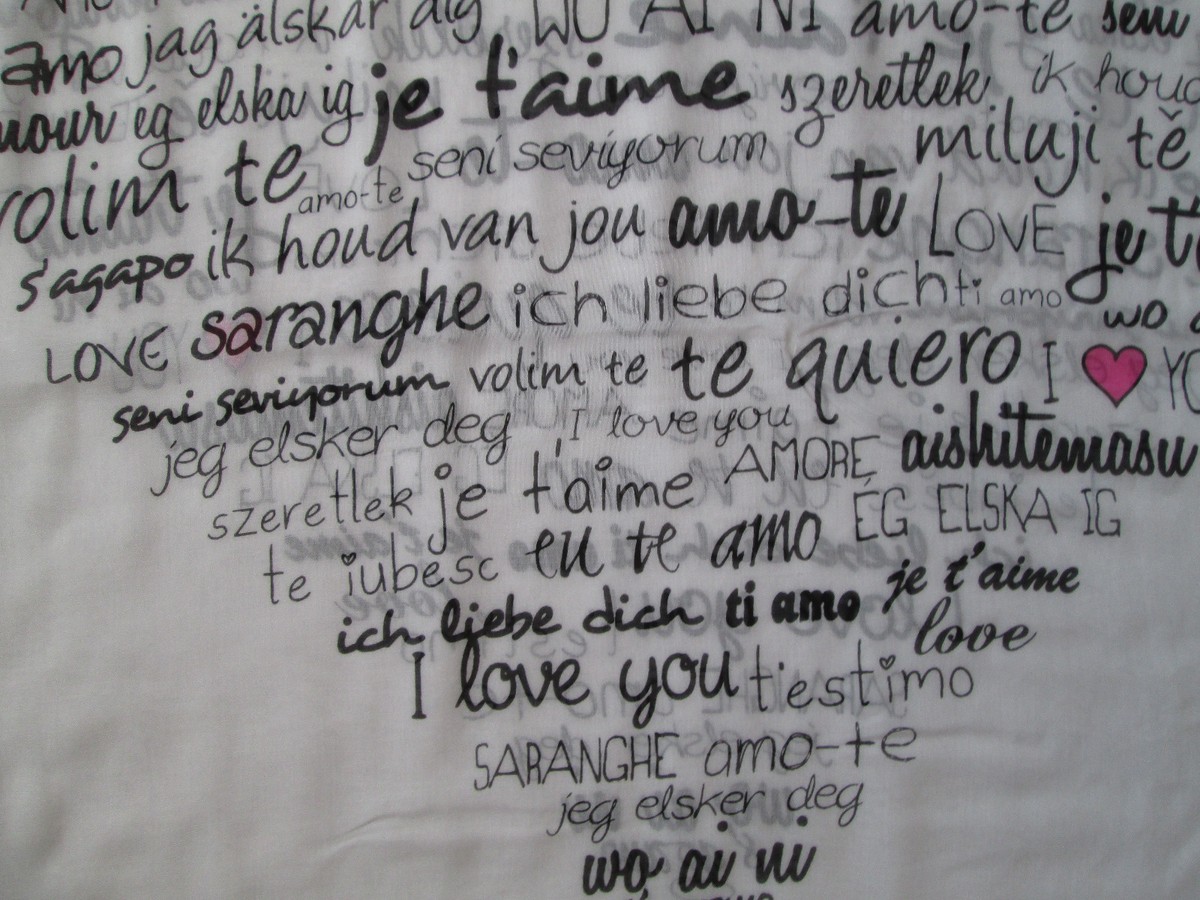 amo jag älskar dig WO AI NI amo-te seni
ég elska ig je t'aime szeretlek ik houd
volim te amo-te seni seviyorum miluji tě
s'agapo ik houd van jou amo-te LOVE je t'
LOVE saranghe ich liebe dich ti amo wo
seni seviyorum volim te te quiero I ♥ YO
jeg elsker deg I love you AMORE aishitemasu
szeretlek je t'aime ÉG ELSKA IG
te iubesc eu te amo je t'aime
ich liebe dich ti amo love
I love you t'estimo
SARANGHE amo-te
jeg elsker deg
wo ai ni